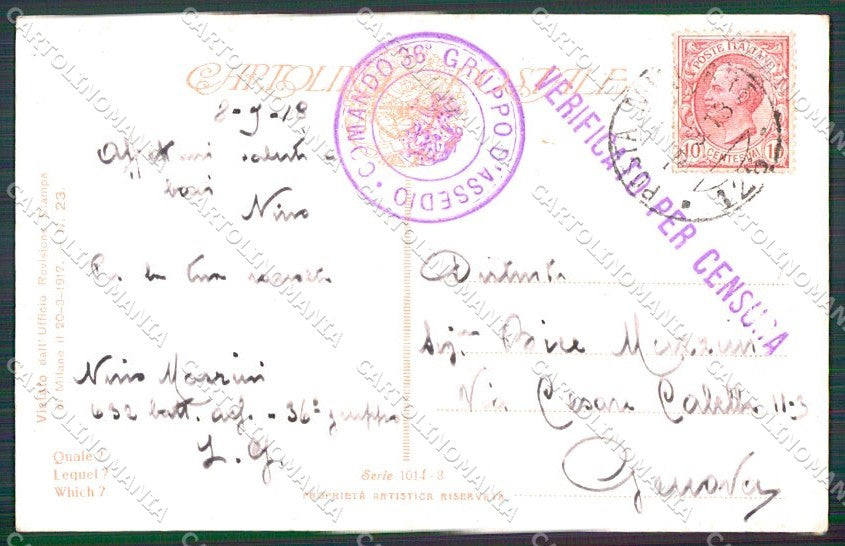 CARTOLINA POSTALE
COMANDO 36° GRUPPO D'ASSEDIO
VERIFICATO PER CENSURA
POSTE ITALIANE
10 CENTESIMI 10
POSTA
8-9-18
Affettuosi saluti e
baci
Nino
Per la tua raccolta
Nino Mazzini
632 batt. - 36° gruppo
Z. G.
Distinta
Bice
Via Cesare Cabella 11-3
Genova
Vistato dall'Ufficio Revisione Stampa
di Milano il 20-3-1917. N. 23.
Quale ?
Lequel ?
Which ?
Serie 1014-3
PROPRIETÀ ARTISTICA RISERVATA
CARTOLINOMANIA